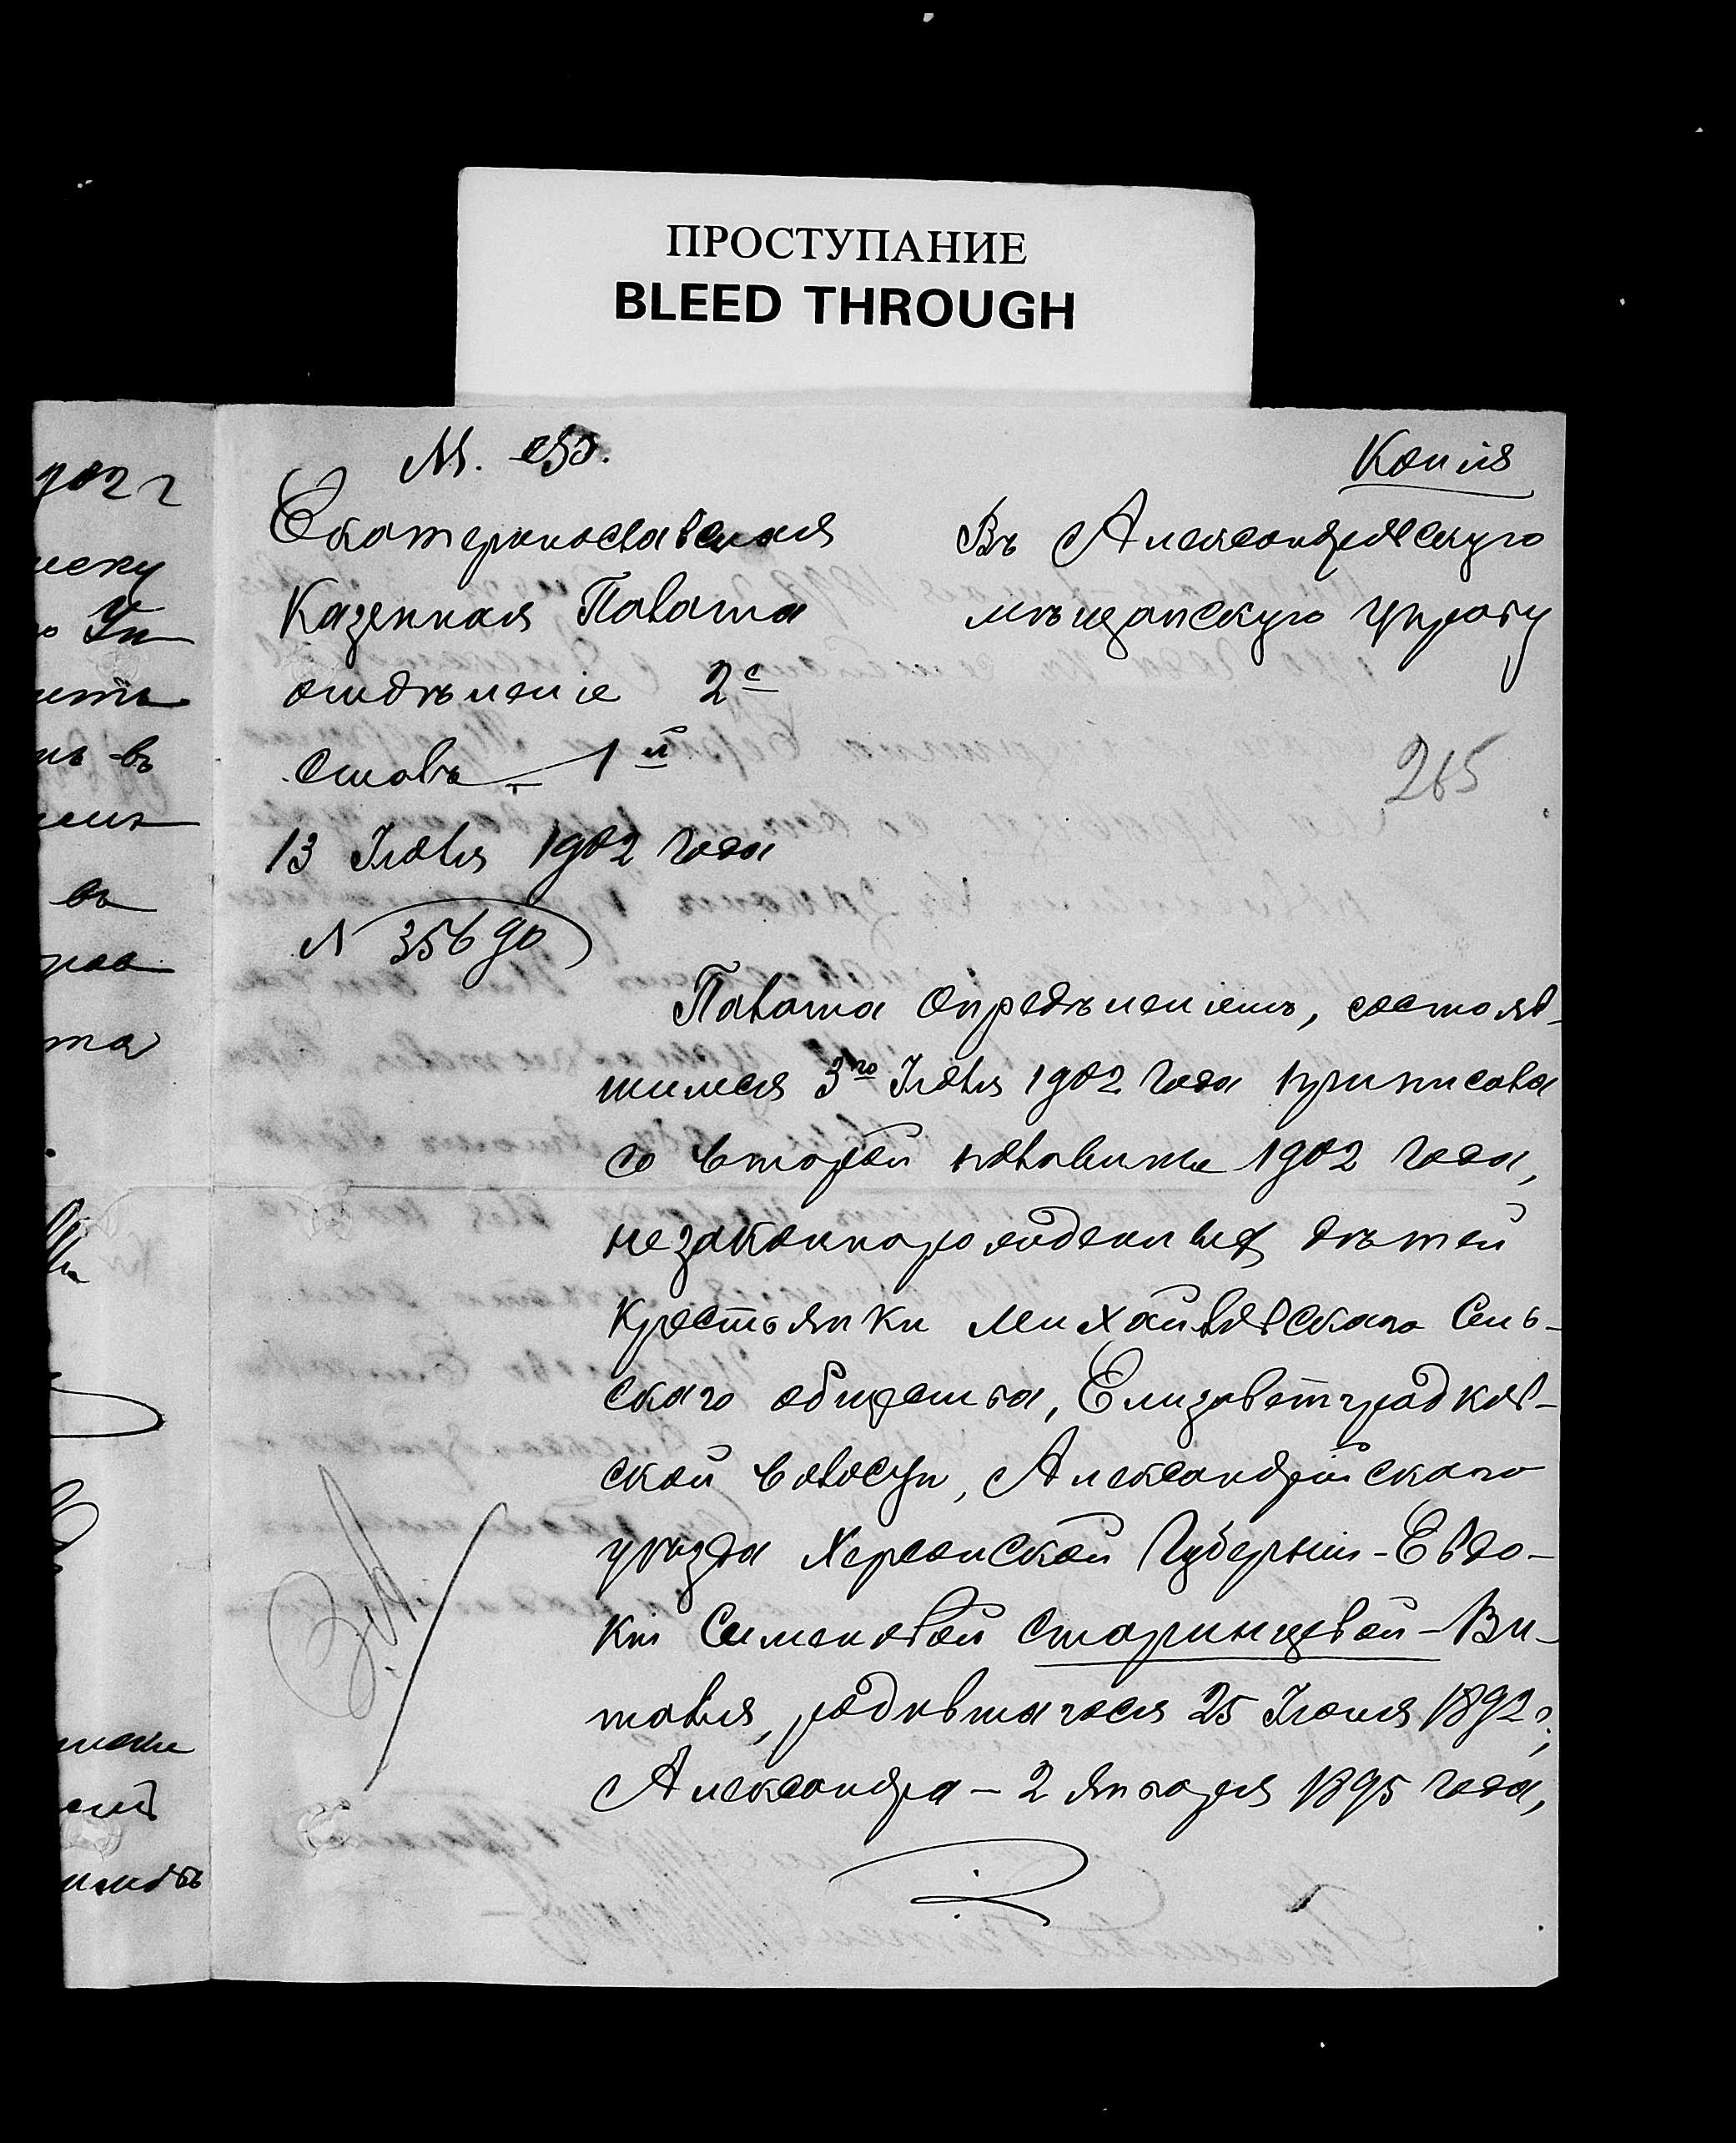 ПРОСТУПАНИЕ
BLEED THROUGH
М. Ф.
Копія
Екатеринославская
Казенная Палата
отдѣленіе 2е
столъ 1й
13 Іюля 1902 года
N 35690
Въ Александровскую
мѣщанскую управу
265
Палата опредѣленіемъ, состояв-
шимся 3го Іюля 1902 года приписала
со второй половины 1902 года,
незаконнорожденныхъ дѣтей
крестьянки Михайловскаго Сель-
скаго общества, Елизаветградков-
ской волости, Александрійскаго
уѣзда Херсонской Губерніи - Евдо-
кіи Семеновой Старинцевой - Ви-
талія, родившагося 25 Іюня 1892 г.,
Александра - 2 Января 1895 года,
902 г
ску
Уп
ить
въ
въ
та